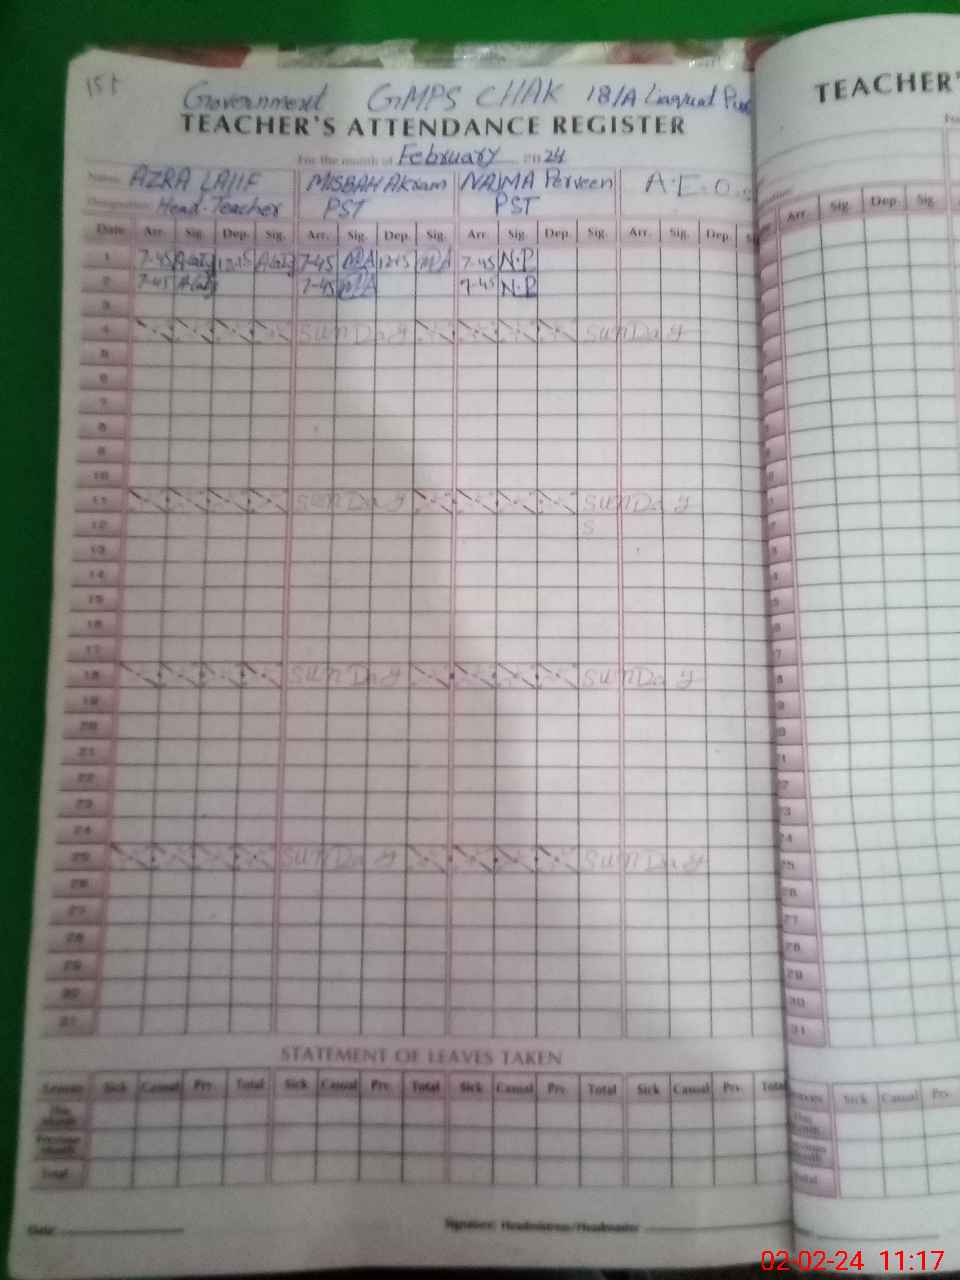 151
Government GMPS CHAK 18/A Liaqat
TEACHER'S ATTENDANCE REGISTER
For the month of February 2024
Name AZRA LATIF MISBAH Akram NAJMA Perveen A.E.O.s
Designation Head-Teacher PST PST
Date Arr. Sig. Dep. Sig. Arr. Sig. Dep. Sig. Arr. Sig. Dep. Sig. Arr. Sig. Dep.
1 7-45 7-45 MA 12:15 MA 7-45 N.P
2 7-45 7-45 MA 7-45 N.P
3
4 SUNDAY SUNDAY
5
6
7
8
9
10
11 SUNDAY SUNDAY
12 S
13
14
15
16
17
18 SUNDAY SUNDAY
19
20
21
22
23
24
25 SUNDAY SUNDAY
26
27
28
29
30
31
STATEMENT OF LEAVES TAKEN
Leaves Sick Casual Prv. Total Sick Casual Prv. Total Sick Casual Prv. Total Sick Casual Prv. Total
This Month
Previous Month
Total
Date Signature: Headmistress/Headmaster
TEACHER'
Arr. Sig. Dep. Sig.
28
29
30
31
Sick Casual Prv.
02-02-24 11:17